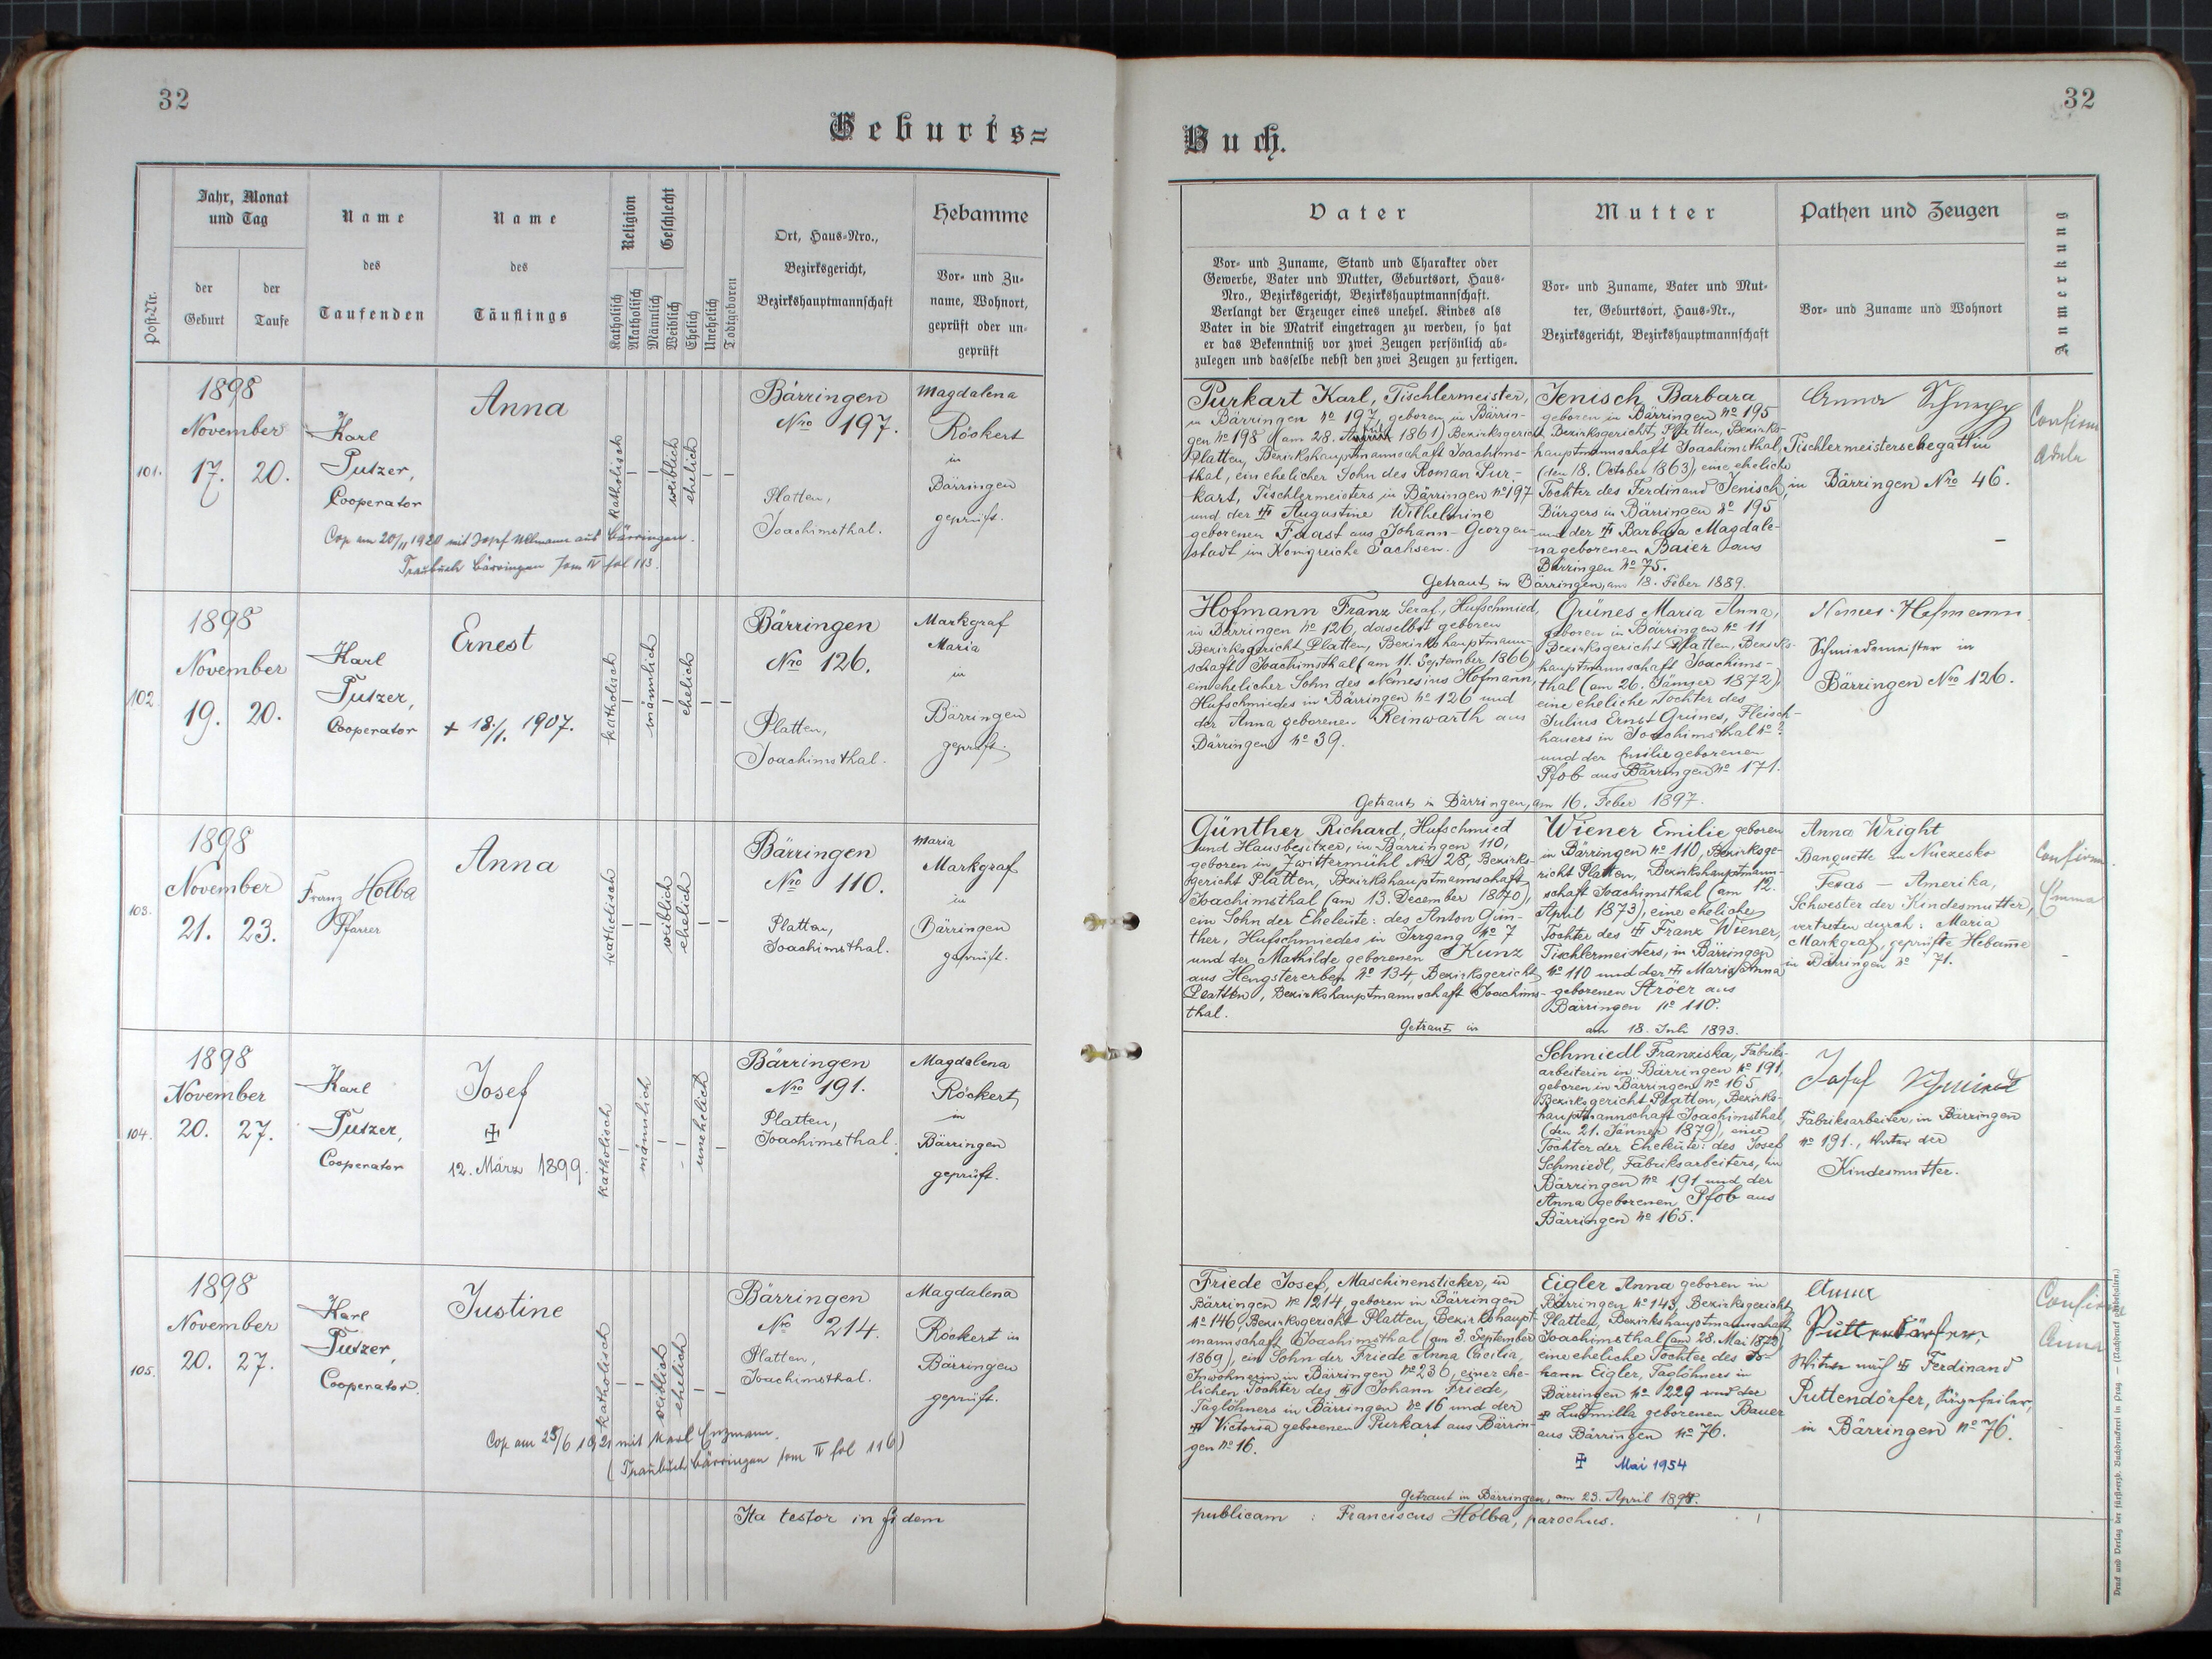 32
Geburts=
Post-Nr.
Jahr, Monat
und Tag
der
Geburt
der
Taufe
Name
des
Taufenden
Name
des
Täuflings
Religion
Katholisch
Akatholisch
Geschlecht
Männlich
Weiblich
Ehelich
Unehelich
Todtgeboren
Ort, Haus=Nro.,
Bezirksgericht,
Bezirkshauptmannschaft
Hebamme
Vor= und Zu=
name, Wohnort,
geprüft oder un=
geprüft
101.
1898
November
17. 20.
Karl
Putzer,
Cooperator
Anna
katholisch
weiblich
ehelich
Bärringen
Nro 197.
Platten,
Joachimsthal.
Magdalena
Röskert
in
Bärringen
geprüft.
Cop am 20/11 1920 mit Josef Ullmann aus Bärringen.
Traubuch Bärringen Tom IV fol 113.
102.
1898
November
19. 20.
Karl
Putzer,
Cooperator
Ernest
+ 18/1. 1907.
katholisch
männlich
ehelich
Bärringen
Nro 126.
Platten,
Joachimsthal.
Markgraf
Maria
in
Bärringen
geprüft.
103.
1898
November
21. 23.
Franz Holba
Pfarrer
Anna
katholisch
weiblich
ehelich
Bärringen
Nro 110.
Platten,
Joachimsthal.
Maria
Markgraf
in
Bärringen
geprüft.
104.
1898
November
20. 27.
Karl
Putzer,
Cooperator
Josef
12. März 1899.
katholisch
männlich
unehelich
Bärringen
Nro 191.
Platten,
Joachimsthal.
Magdalena
Röckert
in
Bärringen
geprüft.
105.
1898
November
20. 27.
Karl
Putzer,
Cooperator.
Justine
katholisch
weiblich
ehelich
Bärringen
No 214.
Platten,
Joachimsthal.
Magdalena
Röckert in
Bärringen
geprüft.
Cop am 25/6 1921 mit Karl Enzmann.
(Traubuch Bärringen tom IV fol 116)
Ita testor in fidem
32
Buch.
Vater
Vor= und Zuname, Stand und Charakter oder
Gewerbe, Vater und Mutter, Geburtsort, Haus=
Nro., Bezirksgericht, Bezirkshauptmannschaft.
Verlangt der Erzeuger eines unehel. Kindes als
Vater in die Matrik eingetragen zu werden, so hat
er das Bekenntniß vor zwei Zeugen persönlich ab=
zulegen und dasselbe nebst den zwei Zeugen zu fertigen.
Mutter
Vor= und Zuname, Vater und Mut=
ter, Geburtsort, Haus=Nr.,
Bezirksgericht, Bezirkshauptmannschaft
Pathen und Zeugen
Vor= und Zuname und Wohnort
Anmerkung
Purkart Karl, Tischlermeister,
in Bärringen No 197, geboren in Bärrin-
gen No 198 (am 28. 1861) Bezirksgericht
Platten, Bezirkshauptmannschaft Joachims-
thal, ein ehelicher Sohn des Roman Pur-
kart, Tischlermeisters in Bärringen No 197
und der Augustine Wilhelmine
geborenen Faast aus Johann-Georgen-
stadt im Königreiche Sachsen.
Jenisch Barbara
geboren in Bärringen No 195
Bezirksgericht, Platten, Bezirks-
hauptmannschaft Joachimsthal,
(den 18. October 1863), eine eheliche
Tochter des Ferdinand Jenisch,
Bürgers in Bärringen No 195
und der Barbara Magdale-
na geborenen Baier aus
Bärringen No 75.
Anna
Tischlermeistersehegattin
in Bärringen Nro 46.
Confirm
Adele
Getraut in Bärringen, am 18. Feber 1889.
Hofmann Franz Seraf, Hufschmied,
in Bärringen No 126, daselbst geboren
Bezirksgericht Platten, Bezirkshauptmann-
schaft Joachimsthal (am 11. September 1866)
ein ehelicher Sohn des Nemesius Hofmann,
Hufschmiedes in Bärringen No 126 und
der Anna geborenen Reinwarth aus
Bärringen No 39.
Grünes Maria Anna,
geboren in Bärringen No 11
Bezirksgericht Platten, Bezirks-
hauptmannschaft Joachims-
thal (am 26. Jänner 1872)
eine eheliche Tochter des
Julius Ernst Grünes, Fleisch-
hauers in Joachimsthal No ?
und der Emilie geborenen
Pfob aus Bärringen No 171.
Nemes. Hofmann
Schmiedemeister in
Bärringen Nro 126.
Getraut in Bärringen, am 16. Feber 1897.
Günther Richard, Hufschmied
und Hausbesitzer, in Bärringen 110,
geboren in Zwittermühl No 28, Bezirks-
gericht Platten, Bezirkshauptmannschaft
Joachimsthal (am 13. December 1870),
ein Sohn der Eheleute: des Anton Gün-
ther, Hufschmiedes in Irrgang No 7
und der Mathilde geborenen Kunz
aus Hengstererben No 134, Bezirksgericht
Platten, Bezirkshauptmannschaft Joachims-
thal.
Wiener Emilie geboren
in Bärringen No 110, Bezirksge-
richt Platten, Bezirkshauptmann-
schaft Joachimsthal (am 12.
April 1873), eine eheliche
Tochter des Franz Wiener,
Tischlermeisters, in Bärringen
No 110 und der Maria Anna
geborenen Ströer aus
Bärringen No 110.
Anna Wright
Banquette in Nuezesko
Texas — Amerika,
Schwester der Kindesmutter
vertreten durch: Maria
Markgraf, geprüfte Hebamme
in Bärringen No 71.
Confirm.
Emma
Getraut in am 18. Juli 1893.
Schmiedl Franziska, Fabriks-
arbeiterin in Bärringen No 191,
geboren in Bärringen No 165
Bezirksgericht Platten, Bezirks-
hauptmannschaft Joachimsthal,
(den 21. Jänner 1879), eine
Tochter der Eheleute: des Josef
Schmiedl, Fabriksarbeiters, in
Bärringen No 191 und der
Anna geborenen Pfob aus
Bärringen No 165.
Josef Schmiedl
Fabriksarbeiter, in Bärringen
No 191., Vater der
Kindesmutter.
Friede Josef, Maschinensticker, in
Bärringen No 214, geboren in Bärringen
No 146, Bezirksgericht Platten, Bezirkshaupt-
mannschaft Joachimsthal (am 3. September
1869), ein Sohn der Friede Anna Cäcilia,
Inwohnerin in Bärringen No 236, einer ehe-
lichen Tochter des Johann Friede,
Taglöhners in Bärringen No 16 und der
Victoria geborenen Purkart aus Bärrin-
gen No 16.
Eigler Anna geboren in
Bärringen No 143, Bezirksgericht
Platten, Bezirkshauptmannschaft
Joachimsthal (am 28. Mai 1872)
eine eheliche Tochter des Jo-
hann Eigler, Taglöhners in
Bärringen No 229 und der
Ludmilla geborenen Bauer
aus Bärringen No 76.
Mai 1954
Anna
Puttendörfer,
Witwe nach Ferdinand
Puttendörfer,
in Bärringen No 76.
Confirm
Anna
Getraut in Bärringen, am 23. April 1898.
publicam : Franciscus Holba, parochus.
Druck und Verlag der fürsterzb. Buchdruckerei in Prag. — (Nachdruck vorbehalten.)